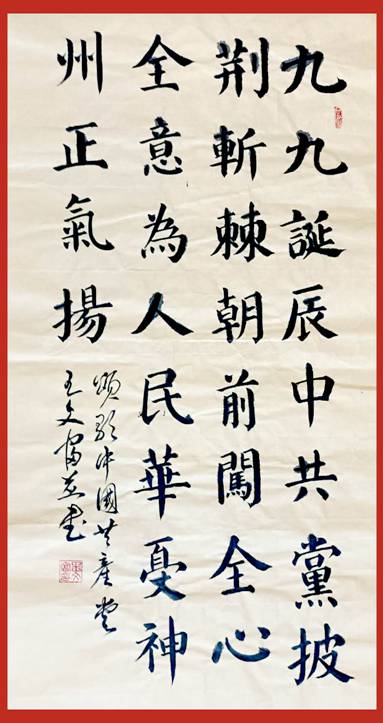 九九誕辰中共黨披
荆斬棘朝前闖全心
全意為人民華夏神
州正氣揚
頌歌中國共產黨
王文富書